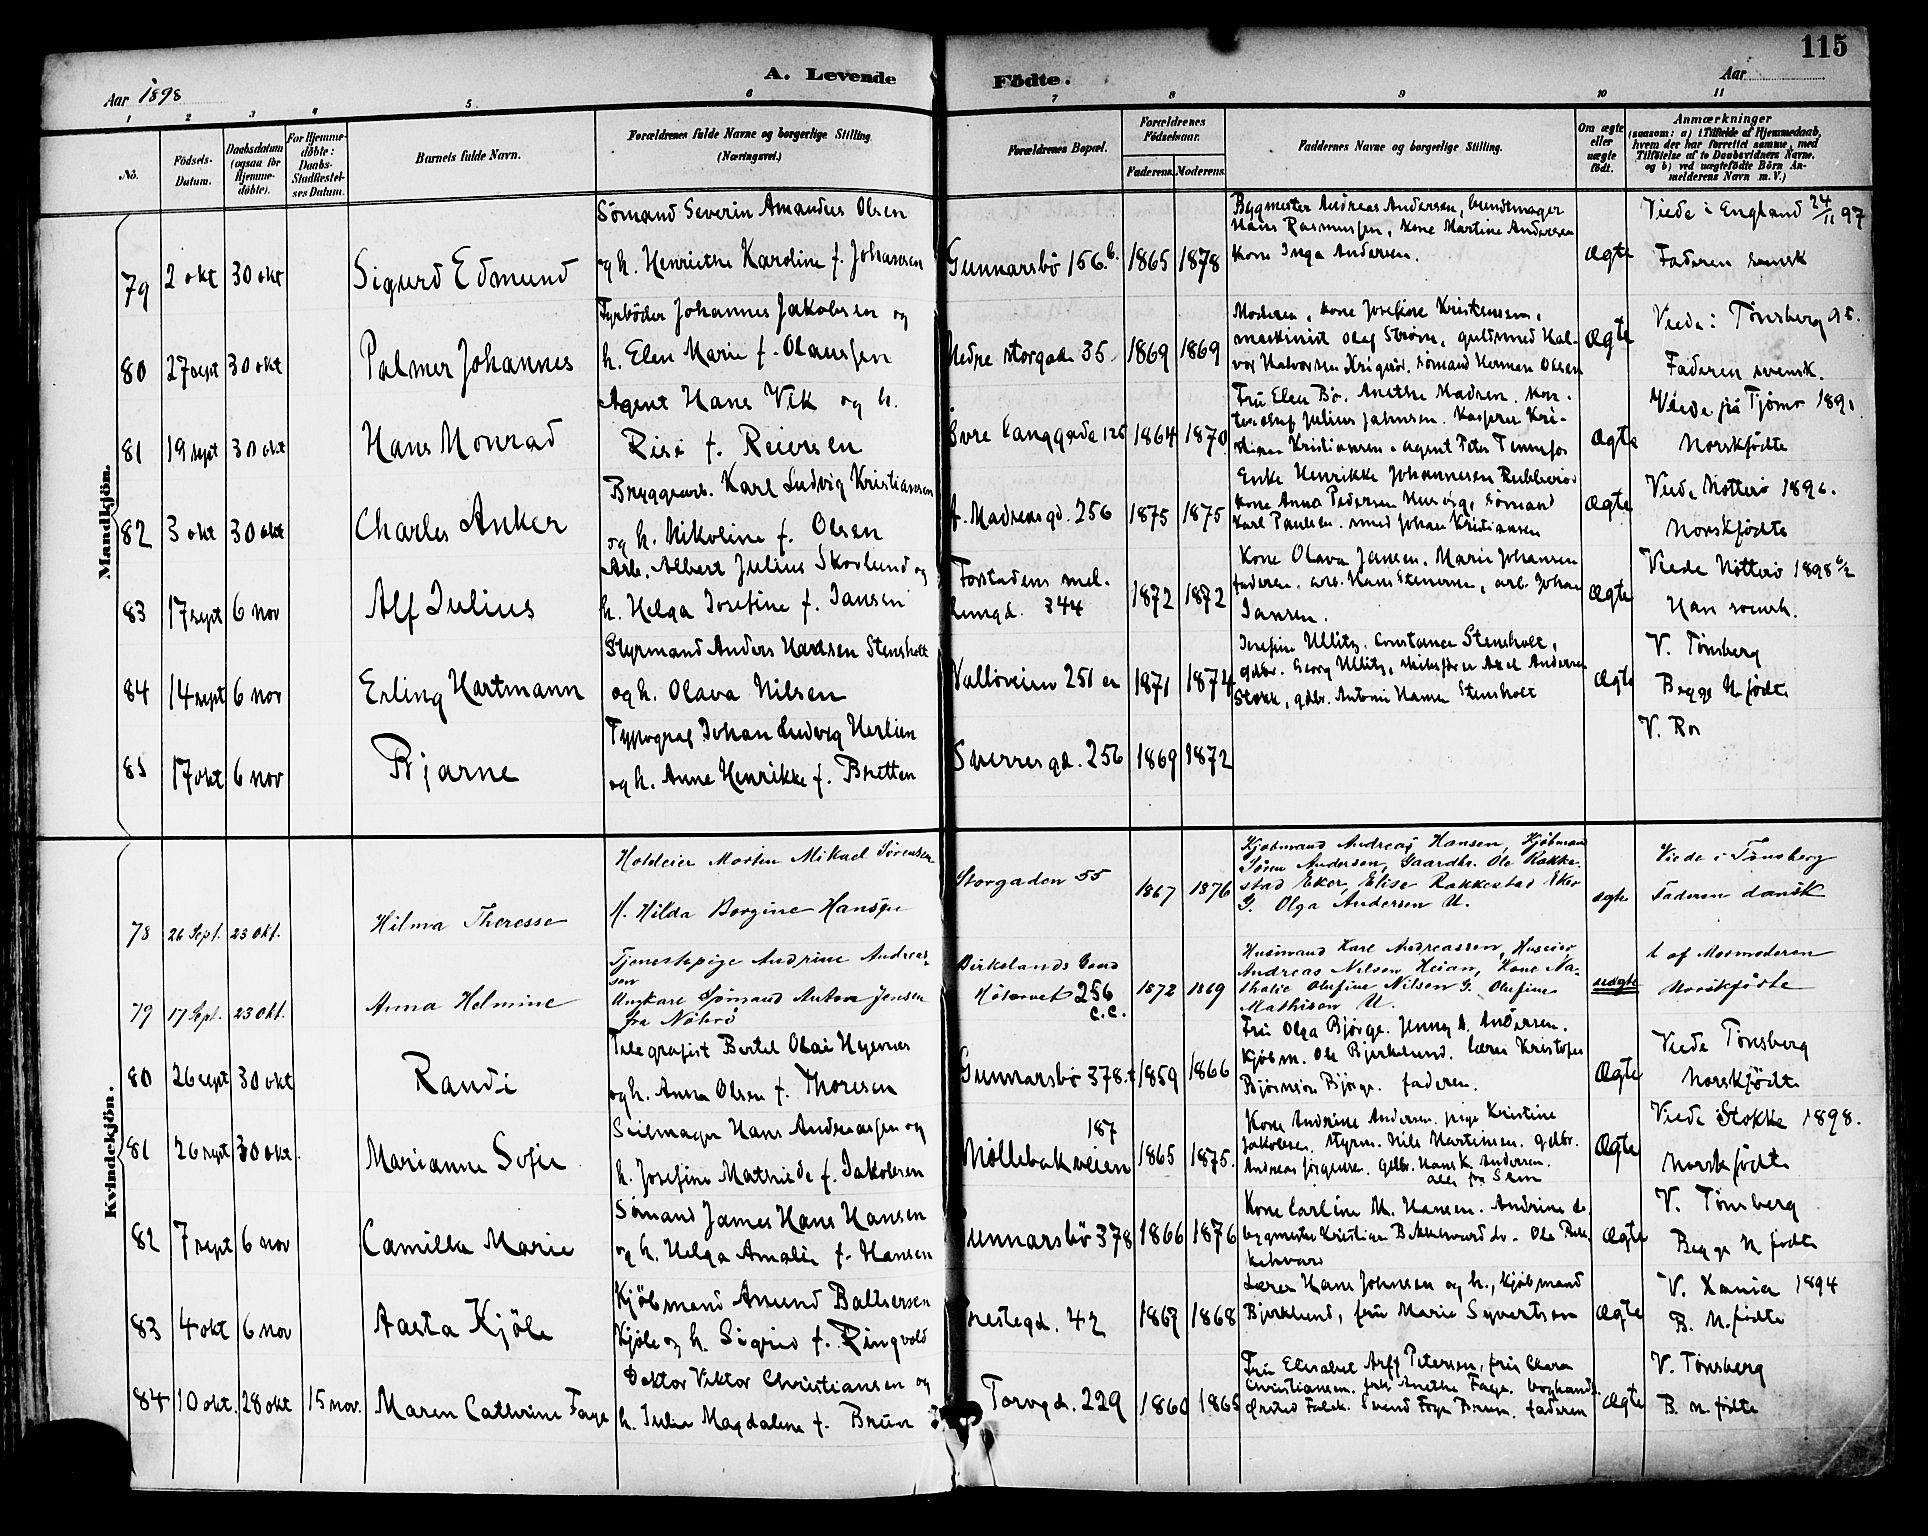 115
A. Levende Födte.
Aar 1898
Aar
1 2 3 4 5 6 7 8 9 10 11
No.
Födsels-Datum.
Daabsdatum (ogsaa for Hjemmedöbte).
For Hjemmedöbte: Daabs-Stadfæstelses Datum.
Barnets fulde Navn.
Forældrenes fulde Navne og borgerlige Stilling. (Næringsvei.)
Forældrenes Bopæl.
Forældrenes Födselsaar.
Faderens. Moderens.
Faddernes Navne og borgerlige Stilling.
Om ægte eller uægte födt.
Anmærkninger
(saasom: a) i Tilfælde af Hjemmedaab, hvem der har forrettet samme, med Tilföielse af to Daabsvidners Navne. og b) ved uægtefödte Börn Anmelderens Navn m. V.)
Mandkjön.
79 2 okt 30 okt Sigurd Edmund
Sømand Severin Amandus Olsen
og h. Henriette Karoline f. Johansen
Gunnarsbø 156.b. 1865 1878
Bygmester Andreas Andersen, bundtmager
Hans Rasmussen, kone Martine Andersen
kone Inga Andersen.
Ægte
Viede i England 24/11 97
Faderen svensk
80 27 sept 30 okt Palmer Johannes
Fyrbøder Johannes Jakobsen og
h. Elen Marie f. Olaussen
Nedre storgade 35. 1869 1869
Moderen, kone Josefine Kristensen,
maskinist Olaf Strøm, guldsmed Hal-
vor Halvorsen, sømand Herman Olsen
Ægte
Viede i Tønsberg 95.
Faderen svensk.
81 19 sept 30 okt Hans Monrad
Agent Hans Vik og h.
Risi f. Reiersen
Øvre langgade 125 1864 1870
Fru Elen Bø. Anethe Madsen. kon-
Julius Jahnsen. Kasper Kri-
Kristiansen. agent Peter
Ægte
Viede på Tjømø 1891
Norskfødte
82 3 okt 30 okt Charles Anker
Bryggearb. Karl Ludvig Kristiansen
og h. Nikoline f. Olsen
A. Madsens gd. 256 1875 1875
Enke Henrikke Johannesen
kone Anna Pedersen, sømand
Karl Paulsen. smed Johan Kristiansen
Ægte
Viede Nøtterø 1896.
Norskfødte
83 17 sept 6 nov Alf Julius
Arb. Albert Julius Skovlund og
h. Helga Josefine f. Jansen
Forstadens mel-
lemgd. 344 1872 1872
Kone Olava Jansen. Marie Johansen
faderen. arb. Hans, arb. Johan
Jansen.
Ægte
Viede Nøtterø 1898 6/2
Han svensk.
84 14 sept 6 nov Erling Hartmann
Styrmand Anders Hansen Stensholt
og h. Olava Nilsen
Valløveien 251 1871 1874
Josefine Ullitz. Constance Stensholt,
gdbr. Georg Ullitz, skibsfører Axel Andersen
Stokk, gdbr. Antoni Hansen Stensholt
Ægte
V. Tønsberg
Begge N. fødte
85 17 okt 6 nov Bjarne
Typograf Johan Ludvig Herlien
og h. Anne Henrikke f. Bretten
Sverres gd. 256 1869 1872
V. Ros
Kvindekjön.
78 26 Sept. 23 Okt. Hilma Theresse
Hoteleier Morten Mikael Sørensen
H. Hilda Borgine Hansen
Storgaden 55 1867 1876
Kjøbmand Andreas Hansen, Kjøbman
Søren Andersen, Gaardbr. Ole Rakke-
stad Eker, Elise Rakkestad Eker
G. Olga Andersen U.
ægte
Viede i Tønsberg
Faderen dansk
79 17 Sept. 23 Okt. Anna Helmine
Tjenestepige Andrine Andreas-
sen
Ungkarl Sømand Anton Jensen
fra Nøtterø
Birkelands Gaard
256
c.c. 1872 1869
Husmand Karl Andreassen, Huseier
Andreas Nilsen Heian, Kone Na-
thalie Olufine Nilsen G. Olufine
Mathisen U.
uægte
t. af Mormoderen
Norskfødte
80 26 sept 30 okt Randi
Telegrafist Bertel Olai Hejernes
og h. Anna Olsen f. Thoresen
Gunnarsbø 378. 1859 1866
Fru Olga Bjørge. Jenny A. Andersen.
Kjøbm. Ole Bjerkelund. lærer Kristofer
Bjørnson Bjørge. faderen.
Ægte
Viede Tønsberg
Norskfødte
81 26 sept 30 okt. Marianne Sofie
Seilmager Hans Andreassen og
h. Josefine Mathilde f. Jakobsen
187
Møllebakveien 1865 1875.
Kone Andrine Andersen. pige Kristine
Jakobsen. styrm. Nils Martinsen. gdbr.
Andreas Jørgensen. Gdbr. Hans K. Andersen.
alle fra Slem
Ægte
Viede Stokke 1898.
Norskfødte
82 7 sept 6 nov Camilla Marie
Sømand James Hans Hansen
og h. Helga Amalie f. Hansen
Gunnarsbø 378 1866 1876
Kone Carline M. Hansen. Andrine do
bygmester Kristian do. Ole
Ægte
V. Tønsberg
Begge N. fødte
83 4 okt 6 nov Aasta Kjøle
Kjøbmand Amund Baltsersen
Kjøle og h. Sigrid f. Ringvold
Prestegd. 42 1867 1868
Lærer Hans Johnsen og h., kjøbmand
Bjerklund, fru Marie Syvertsen
Ægte
V. Xania 1894
B. N. fødte
84 10 okt. 28 okt 15 nov. Maren Cathrine Faye
Doktor Viktor Christiansen og
h. Julie Magdalene f. Brun
Torvgd. 229 1860 1865
Fru Elisabet Arff Petersen, fru Clara
Christiansen. frk Anethe Faye. boghandl.
Ørsted Falck. Svend Foyn Bruun. faderen
Ægte
V. Tønsberg
B. N. fødte